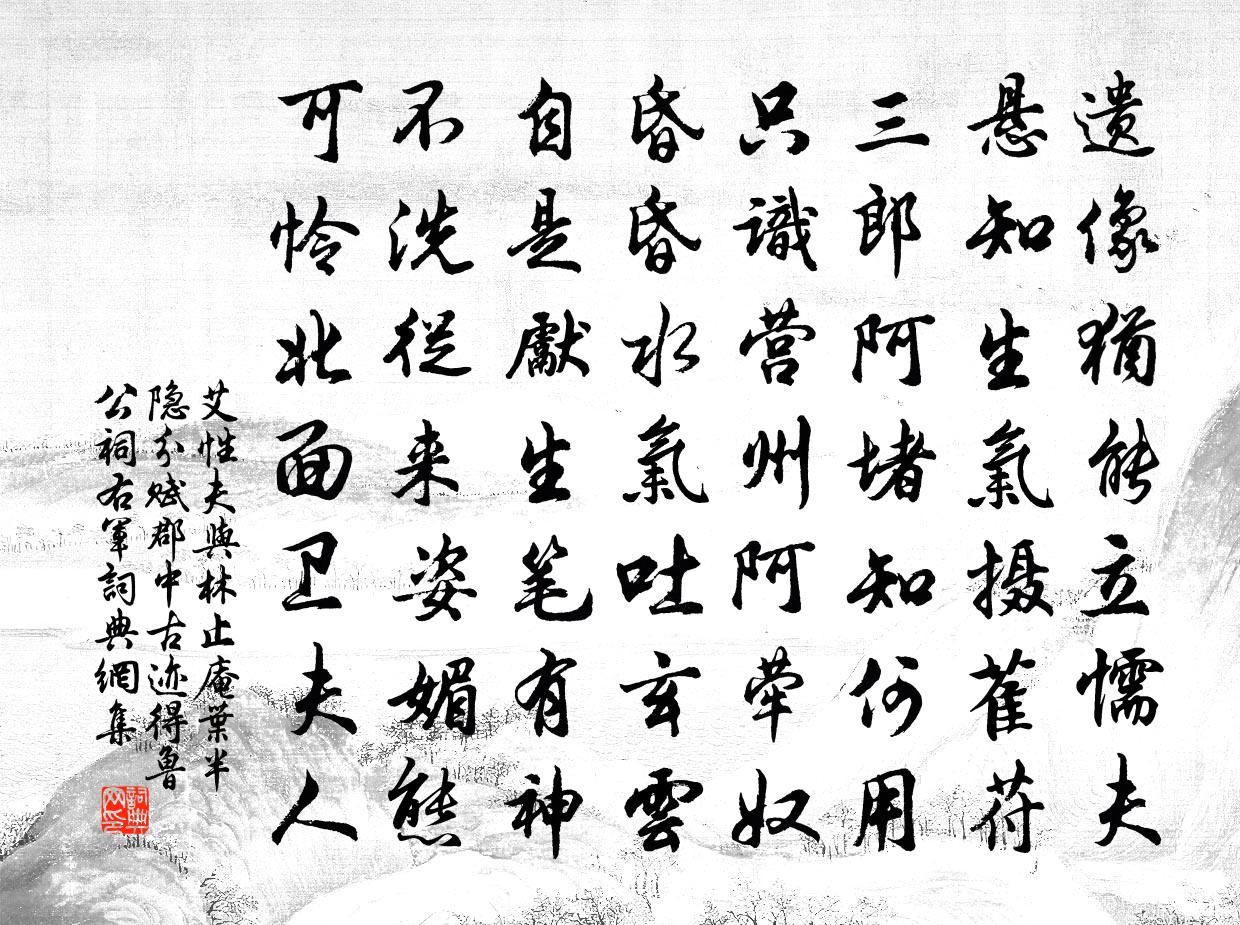 遗像犹能立懦夫
悬知生氣摄萑苻
三郎阿堵知何用
只識营州阿荦奴
昏昏水氣吐玄雲
自是獻生笔有神
不洗従来姿媚態
可怜北面卫夫人
艾性夫與林止庵葉半
隐分赋郡中古迹得魯
公祠右軍詞典網集